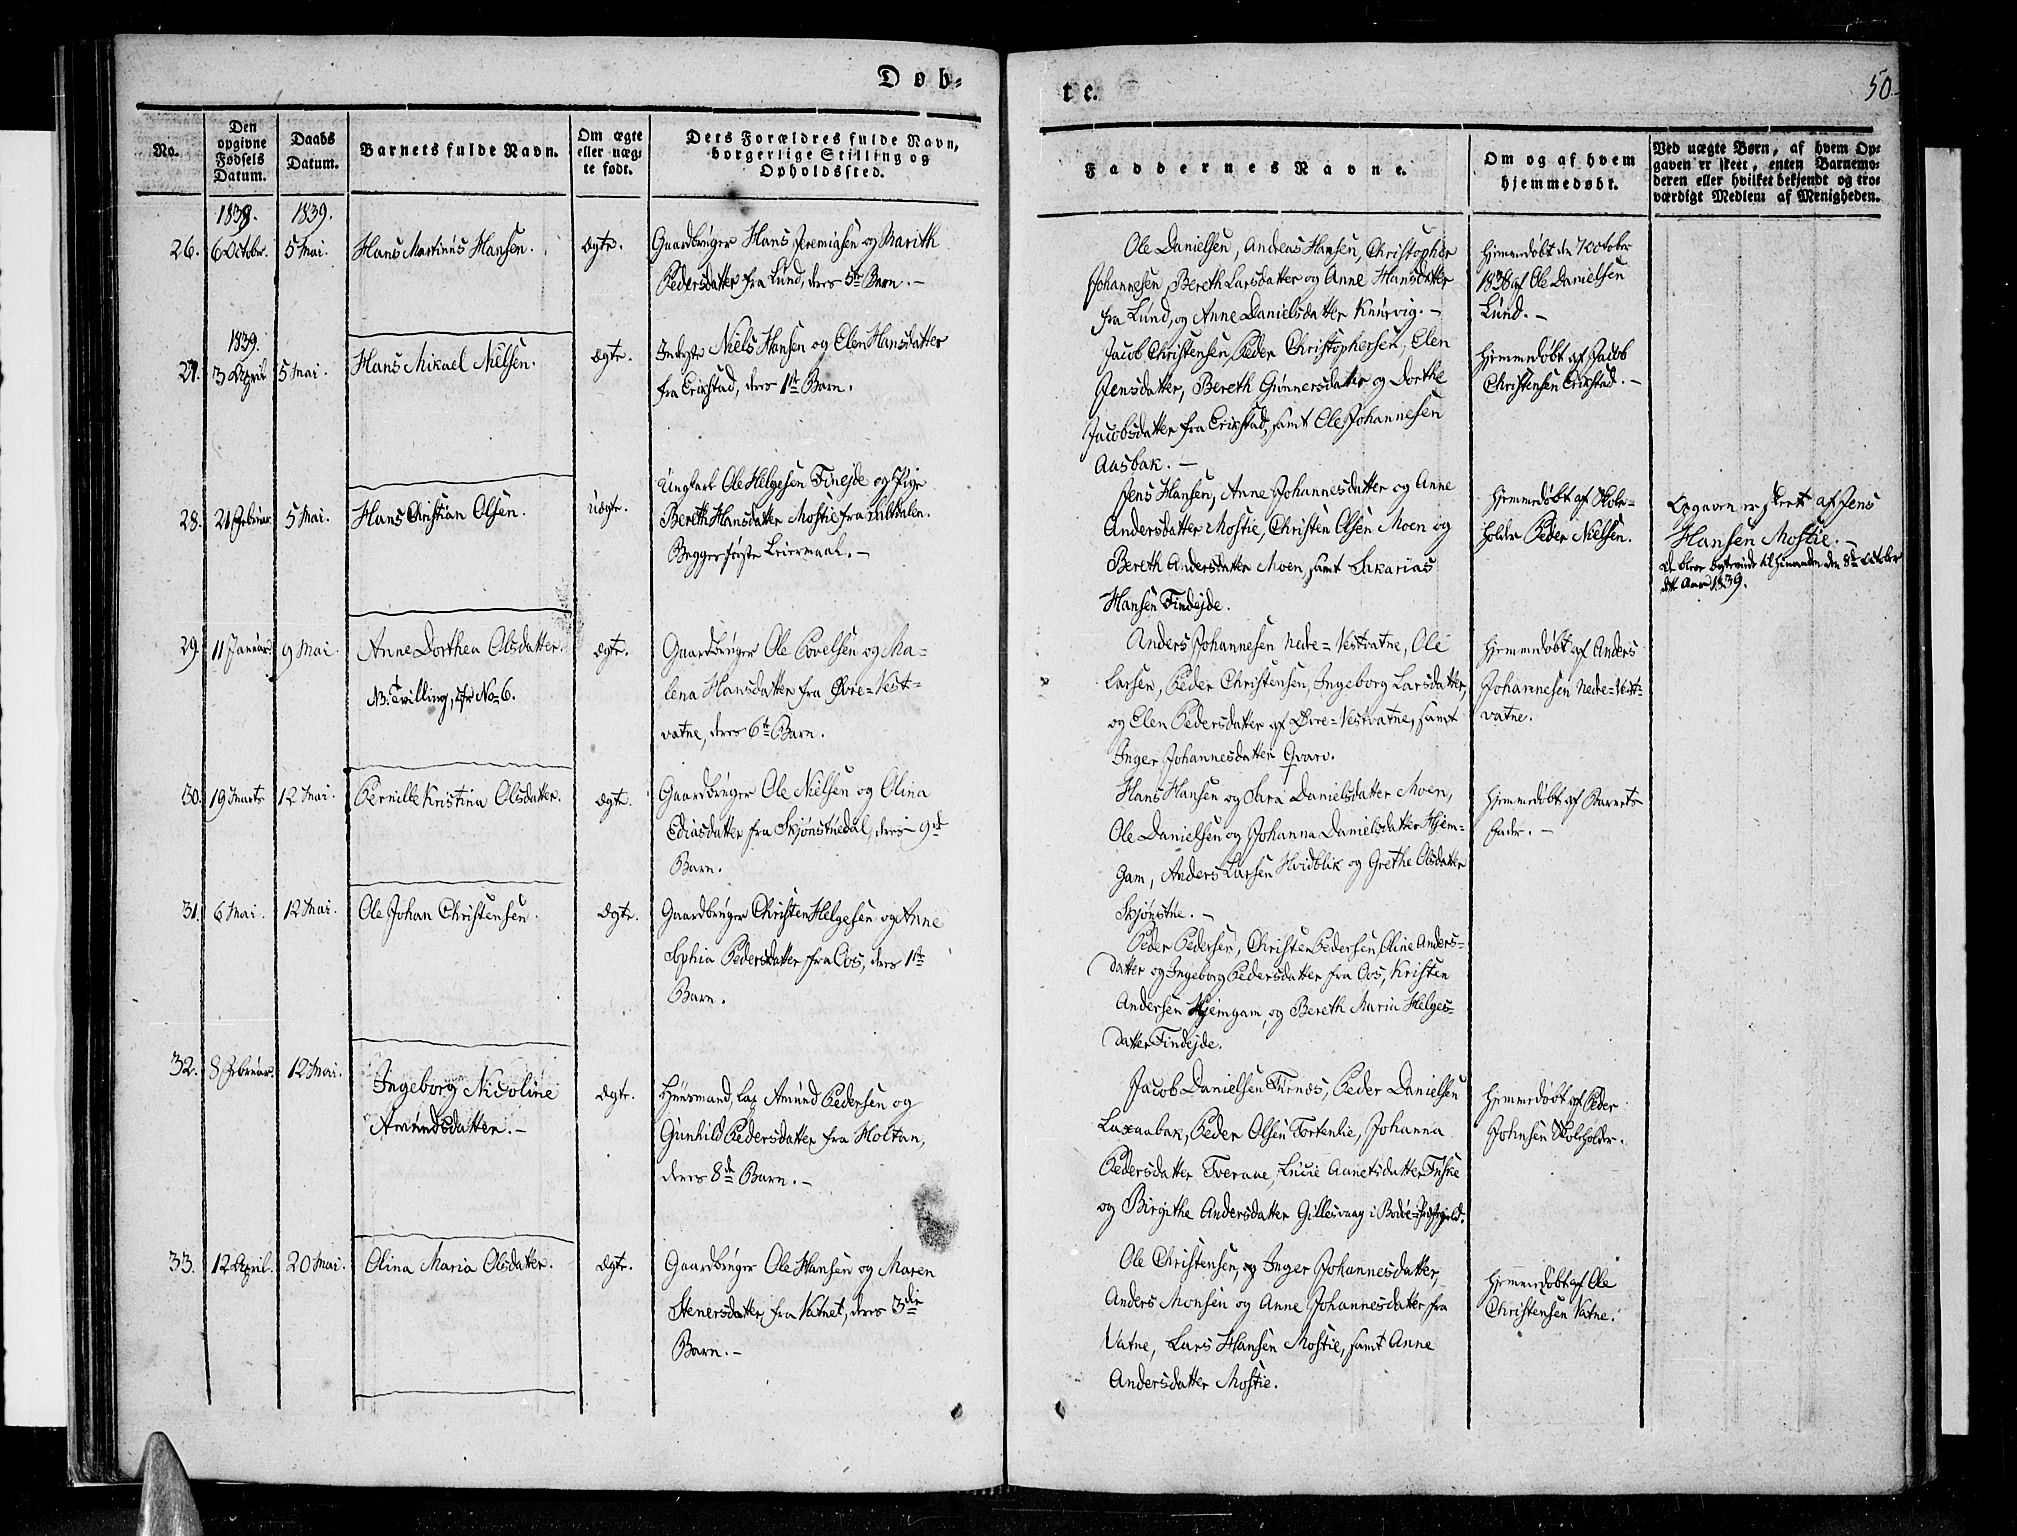 Døb-
te.
50.
No.
Den
opgivne
Fødsels
Datum.
Daabs
Datum.
Barnets fulde Navn.
Om ægte
eller uæg-
te født.
Dets Forældres fulde Navn,
borgerlige Stilling og
Opholdssted.
Faddernes Navne.
Om og af hvem
hjemmedøbt.
Ved uægte Børn, af hvem Op-
gaven er skeet, enten Barnemo-
deren eller hvilket bekjendt og tro-
værdigt Medlem af Menigheden.
1838.
1839.
26.
6 October.
5 Mai.
Hans Martinus Hansen.
Ægte.
Gaardbruger Hans Jeremiasen og Marith
Pedersdatter fra Lund, deres 5te Barn.
Ole Danielsen, Andreas Hansen, Christopher
Johannesen, Bereth Larsdatter og Anne Hansdatter
fra Lund, og Anne Danielsdatter Knurvig.
Hjemmedøbt den 7 October
1838 af Ole Danielsen
Lund.
1839.
27.
3 April
5 Mai.
Hans Mikael Nielsen.
Ægte.
Inderste Niels Hansen og Elen Hansdatter
fra Erikstad, deres 1ste Barn.
Jacob Christensen, Peder Christophersen, Elen
Jensdatter, Bereth Gunnersdatter og Dorthe
Jacobsdatter fra Erikstad, samt Ole Johannesen
Aasbak.
Hjemmedøbt af Jacob
Christensen Erikstad.
28.
21 Februar
5 Mai.
Hans Christian Olsen.
Uægte.
Ungkarl Ole Helgesen Finejde og Pige
Bereth Hansdatter Mostie fra Saltdalen.
Begges første Leiermaal.
Jens Hansen, Anne Johannesdatter og Anne
Andersdatter Mostie, Christen Olsen Moen og
Bereth Andersdatter Moen, samt Sakarias
Hansen Findejde.
Hjemmedøbt af Skole-
holder Peder Nielsen.
Opgaven er skeet af Jens
Hansen Mostie.
De bleve egteviede til hinanden den 8de October
dette Aar 1839.
29.
11 Januar
9 Mai.
Anne Dorthea Olsdatter.
NB. Tvilling, cfr No 6.
Ægte.
Gaardbruger Ole Povelsen og Ma-
lena Hansdatter fra Øvre-Vest-
vatne, deres 6te Barn.
Anders Johannesen Nedre-Vestvatne, Ole
Larsen, Peder Christensen, Ingeborg Larsdatter,
og Elen Pedersdatter af Øvre-Vestvatne, samt
Inger Johannesdatter Qvarv.
Hjemmedøbt af Anders
Johannesen Nedre-Vest-
vatne.
30.
19 Marts
12 Mai.
Pernille Kristina Olsdatter.
Ægte.
Gaardbruger Ole Nielsen og Olina
Ediasdatter fra Skjønstuedal, deres 9de
Barn.
Hans Hansen og Sara Danielsdatter Moen,
Ole Danielsen og Johanna Danielsdatter Hjem-
gam, Anders Larsen Hvidblik og Grethe Olsdatter
Skjønstue.
Hjemmedøbt af Barnets
Fader.
31.
6 Mai.
12 Mai.
Ole Johan Christensen.
Ægte.
Gaardbruger Christen Helgesen og Anne
Sophia Pedersdatter fra Oos, deres 1ste
Barn.
Peder Pedersen, Christen Pedersen, Oline Anders-
datter og Ingeborg Pedersdatter fra Oos, Kristen
Andersen Hjemgam, og Bereth Maria Helges-
datter Findejde.
32.
8 Februar.
12 Mai.
Ingeborg Nicoline
Amundsdatter.
Ægte.
Huusmand, Lap Amund Pedersen og
Gunhild Pedersdatter fra Holtan,
deres 8de Barn.
Jacob Danielsen Furnæs, Peder Danielsen
Laxaabak, Peder Olsen Tortenlie, Johanna
Pedersdatter Tveraae, Lucie Aanetsdatter Fuske
og Birgithe Andersdatter Gillesvaag i Bodøe-Præstegield.
Hjemmedøbt af Peder
Johnsen Skoleholder.
33.
12 April.
20 Mai.
Olina Maria Olsdatter.
Ægte.
Gaardbruger Ole Hansen og Maren
Stenersdatter fra Vatnet, deres 3die
Barn.
Ole Christensen, og Inger Johannesdatter,
Anders Monsen og Anne Johannesdatter fra
Vatne, Lars Hansen Mostie, samt Anne
Andersdatter Mostie.
Hjemmedøbt af Ole
Christensen Vatne.